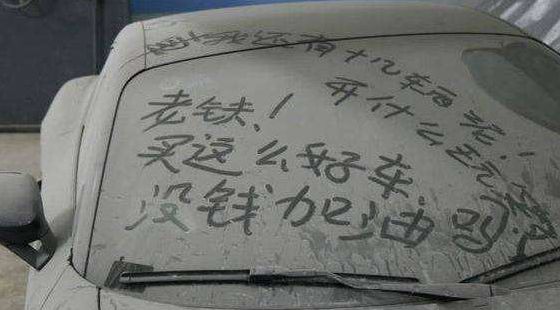 我还有十几车
开什么玩笑
老铁！
买这么好车，
没钱加油吗？